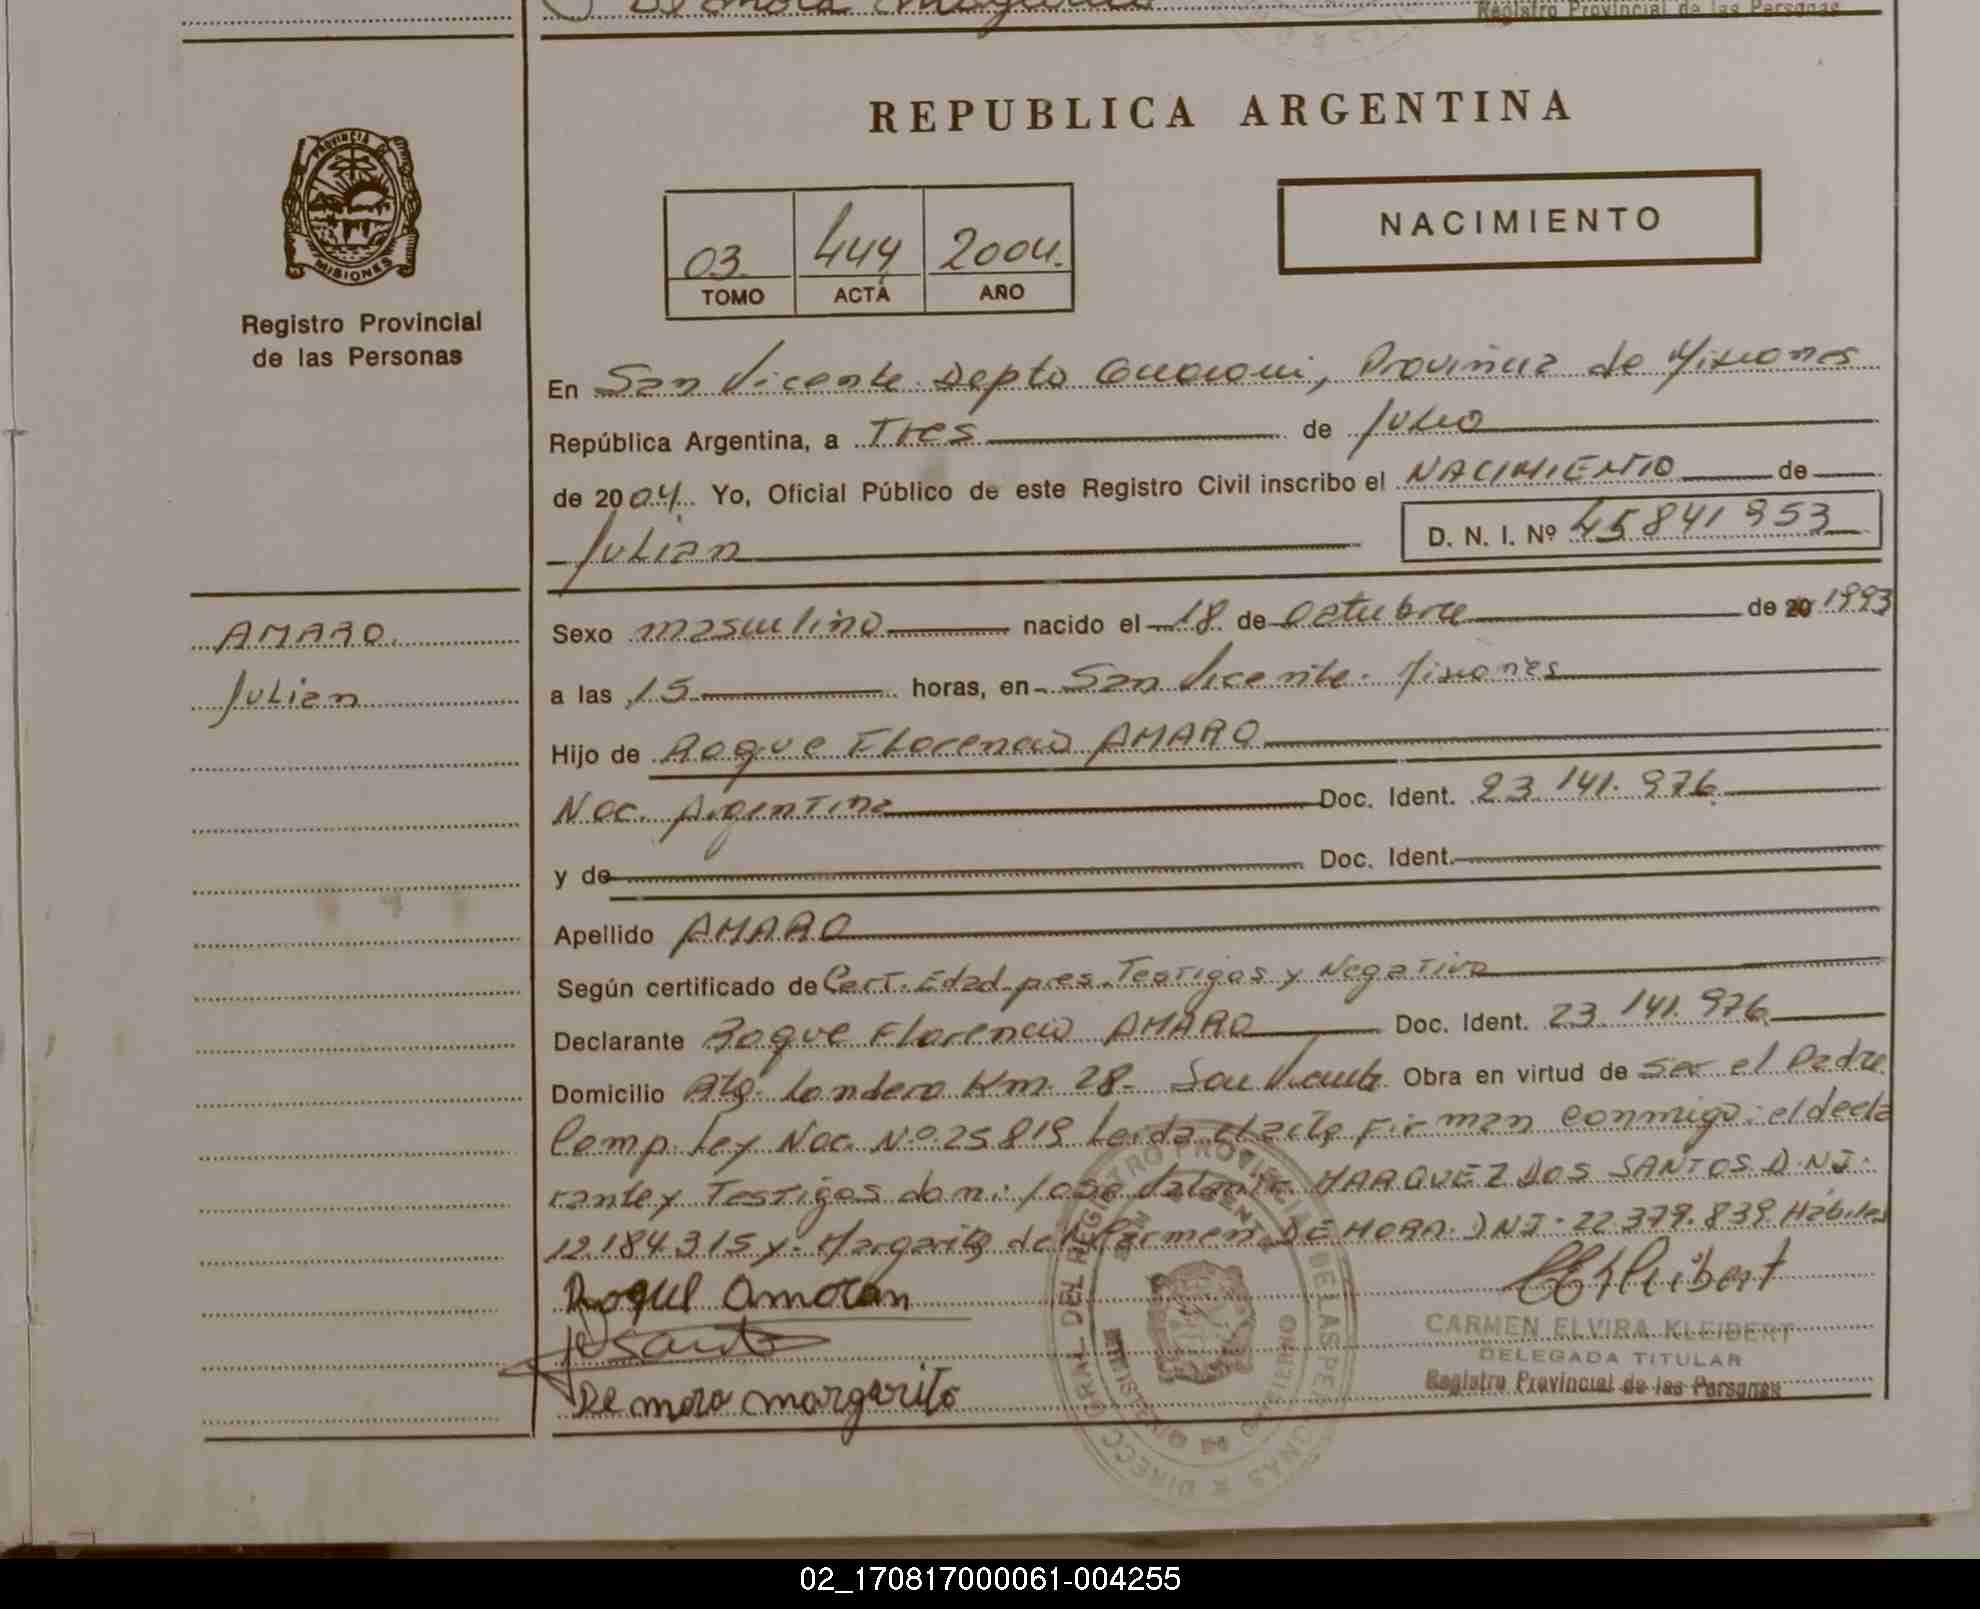 De mora margarito
Registro Provincial de las Personas
REPUBLICA ARGENTINA
PROVINCIA DE
MISIONES
Registro Provincial
de las Personas
NACIMIENTO
03 444 2004.
TOMO ACTA AÑO
En San Vicente Depto Guarani, Provincia de Misiones
República Argentina, a Tres de Julio
de 2004. Yo, Oficial Público de este Registro Civil inscribo el NACIMIENTO de
Julian D. N. I. Nº 45841953
AMARO.
Julian
Sexo masculino nacido el 18 de Octubre de 20 1993
a las 15 horas, en San Vicente - Misiones
Hijo de Roque Florencio AMARO
Nac. Argentina Doc. Ident. 23.141.976
y de Doc. Ident.
Apellido AMARO
Según certificado de Cert. Edad pres. Testigos y Negativo
Declarante Roque Florencio AMARO Doc. Ident. 23.141.976
Domicilio Londero Km. 28- San Vicente Obra en virtud de ser el Padre
Comp. Ley Nac. Nº 25819 Leida el acta firman conmigo: el decla
rante y Testigos don: Jose MARQUEZ DOS SANTOS D.N.I.
12184315 y. Margarita del Carmen DE MORA. DNI. 22.379.839. Hábiles
Roque Amaran
De mora margarito
CARMEN ELVIRA KLEIBERT
DELEGADA TITULAR
Registro Provincial de las Personas
02_170817000061-004255